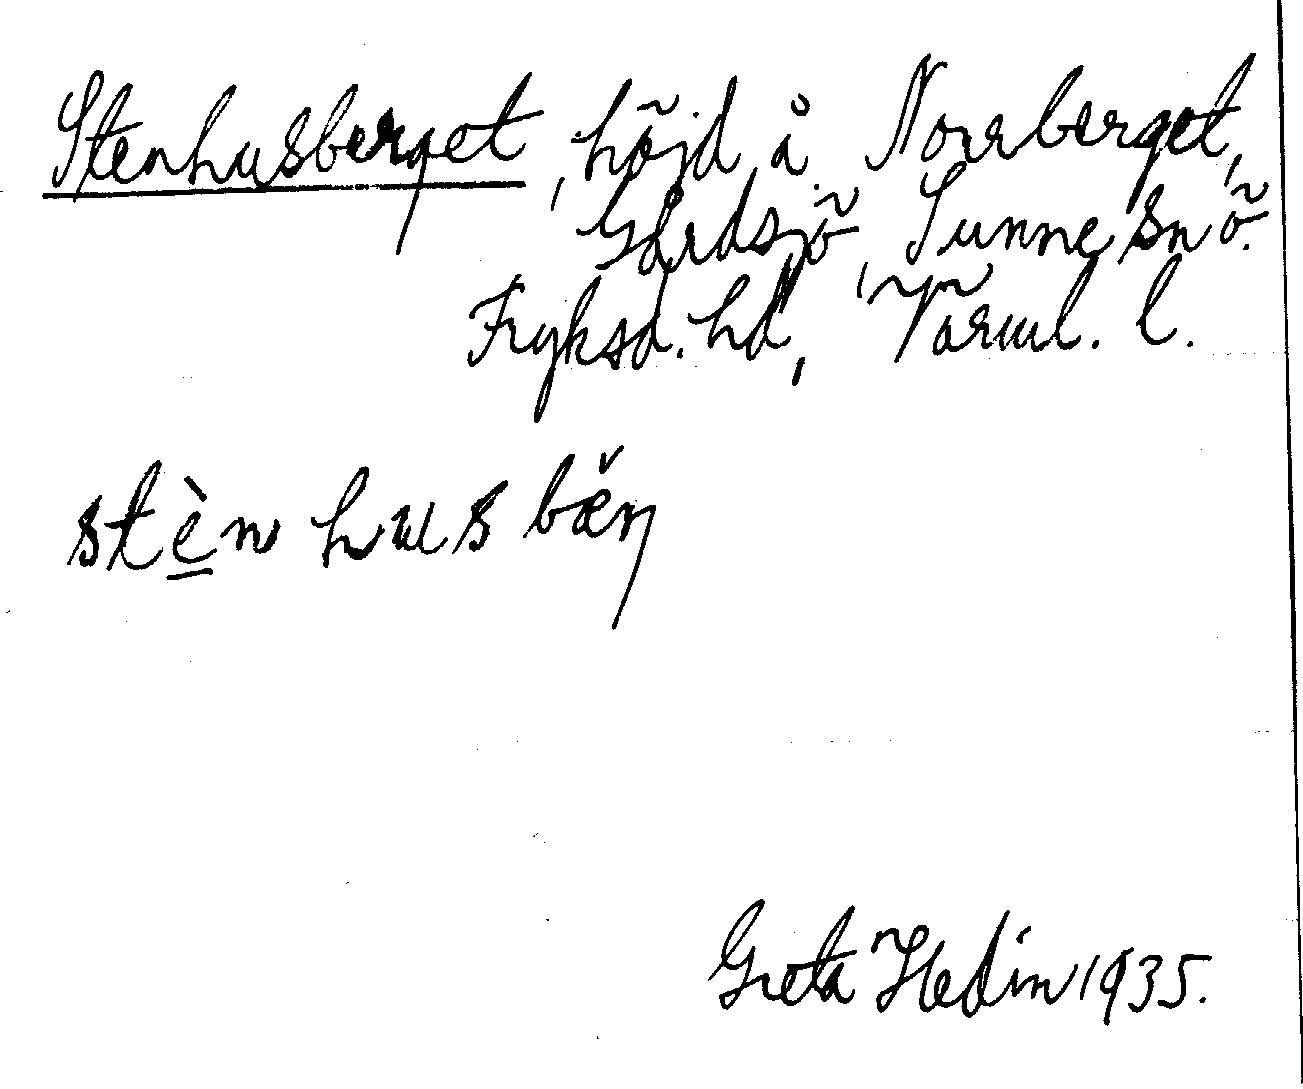 Stenhusberget, höjd å Norrberget,
Gårdsjö, Sunne sn ö.
Fryksd. hd, Värml. l.
stèn hus bæ̌ŋ
Greta Hedin 1935.